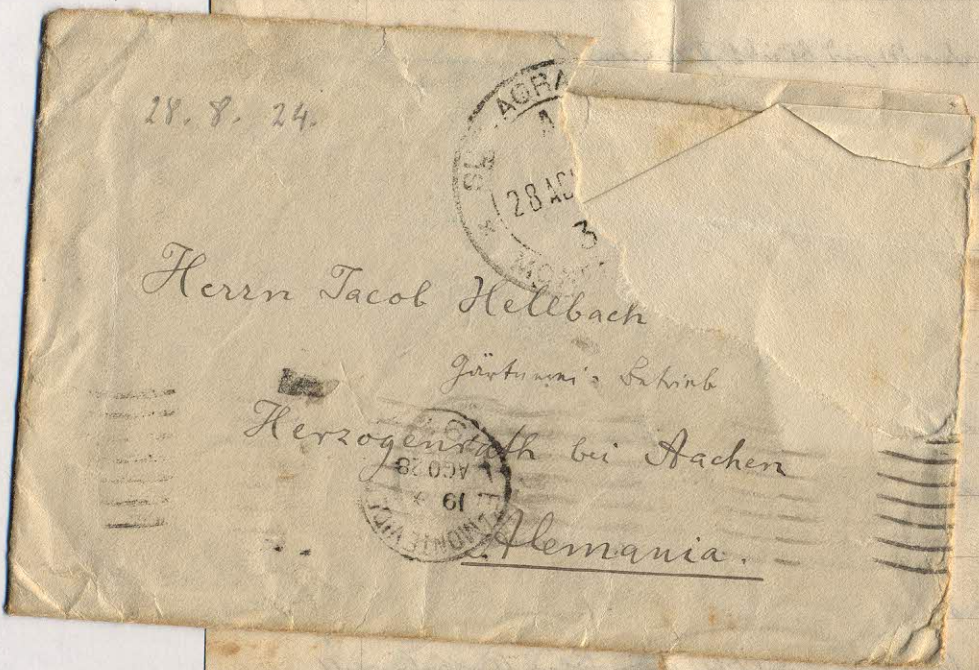 28. 8. 24.
AGRA
28 AG
3
Herrn Jacob Hellbach
Gärtnerei-Betrieb
Herzogenrath bei Aachen
AGO 28
19
MONTEVIDE
Alemania.